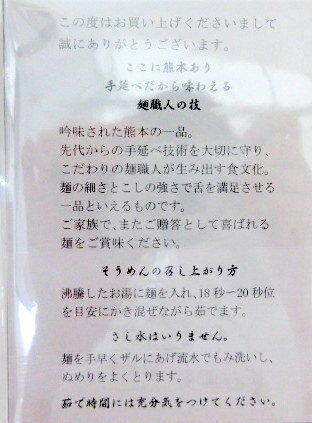 この度はお買い上げくださいまして
誠にありがとうございます。
ここに熊本あり
手延べだから味わえる
麺職人の技
吟味された熊本の一品。
先代からの手延べ技術を大切に守り、
こだわりの麺職人が生み出す食文化。
麺の細さとこしの強さで舌を満足させる
一品といえるものです。
ご家族で、またご贈答として喜ばれる
麺をご賞味ください。
そうめんの召し上がり方
沸騰したお湯に麺を入れ、18秒〜20秒位
を目安にかき混ぜながら茹でます。
さし水はいりません。
麺を手早くザルにあげ流水でもみ洗いし、
ぬめりをよくとります。
茹で時間には充分気をつけてください。